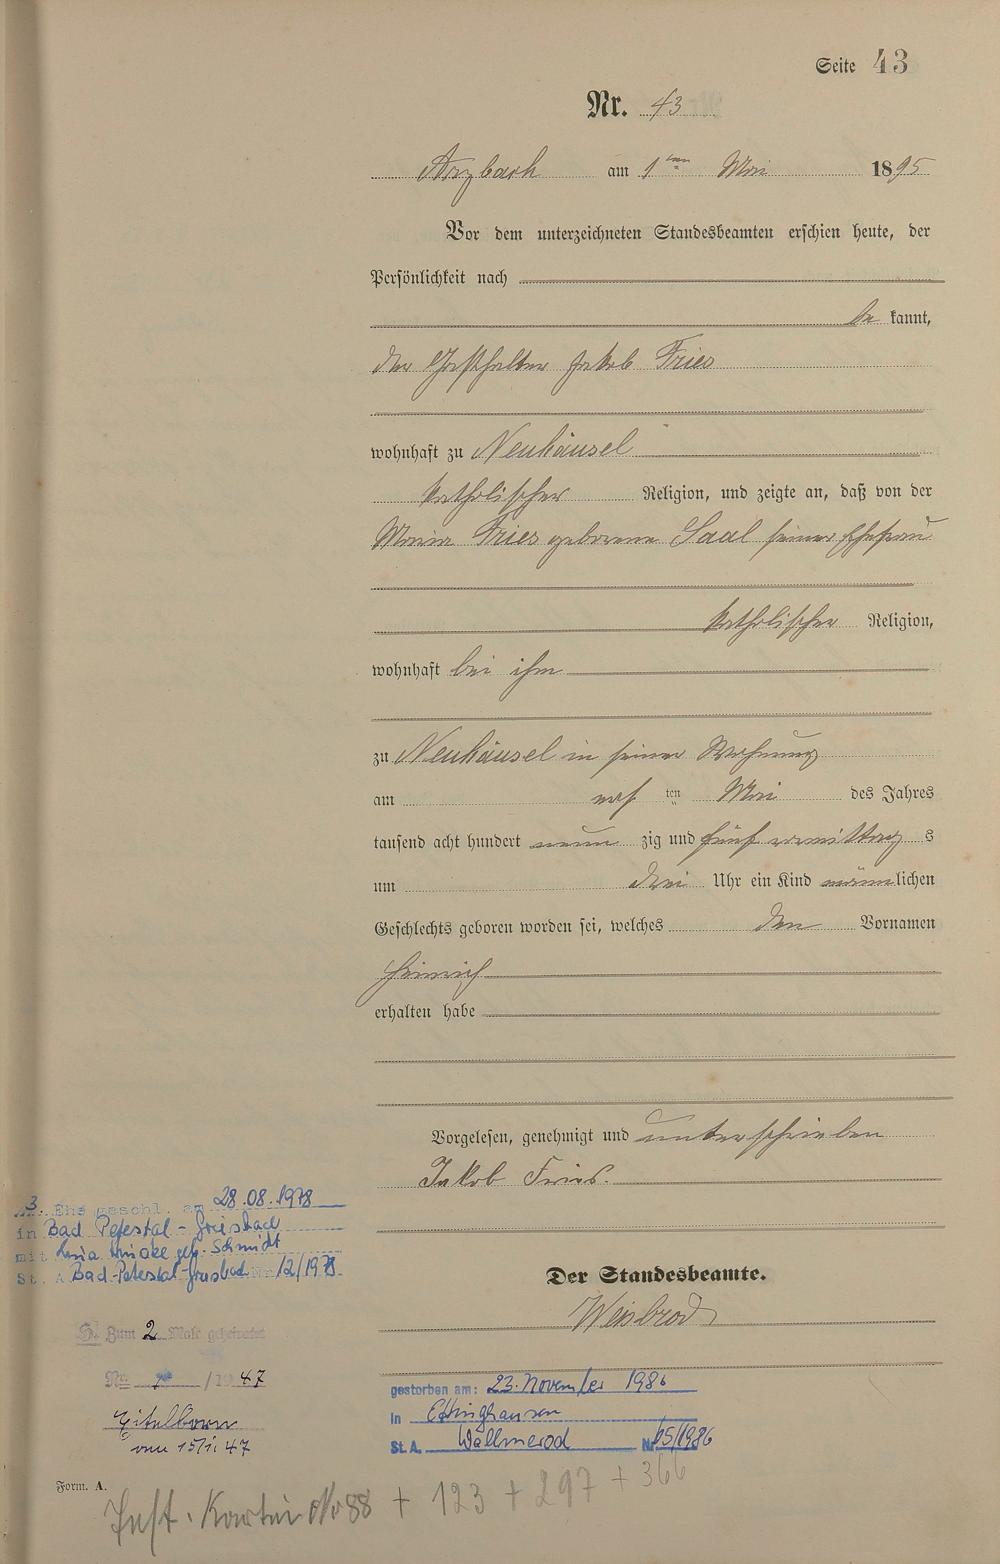 Seite 43
Nr. 43
Arzbach am 1ten Mai 1895
Vor dem unterzeichneten Standesbeamten erschien heute, der
Persönlichkeit nach
be kannt,
der Gasthalter Jakob Fries
wohnhaft zu Neuhäusel
katholischer Religion, und zeigte an, daß von der
Maria Fries geborene Saal seiner Ehefrau
katholischer Religion,
wohnhaft bei ihm
zu Neuhäusel in seiner Wohnung
am ten Mai des Jahres
tausend acht hundert neun zig und fünf vormittag s
um drei Uhr ein Kind männlichen
Geschlechts geboren worden sei, welches den Vornamen
Heinrich
erhalten habe
Vorgelesen, genehmigt und unterschrieben
Jakob Fries.
3. Ehe geschl. am 28.08.1978
in Bad Peterstal-Griesbach
mit geb. Schmidt
St. A. Bad-Peterstal-Griesbach Nr. 12/1978
Der Standesbeamte.
Weisbrod
H. Zum 2 Male geheiratet
Nr. /1947
Eitelborn
vom 15/1. 47
gestorben am: 23. November 1986
in Ettinghausen
St. A. Wallmerod Nr. 65/1986
Form. A.
No 88 + 123 + 297 + 366